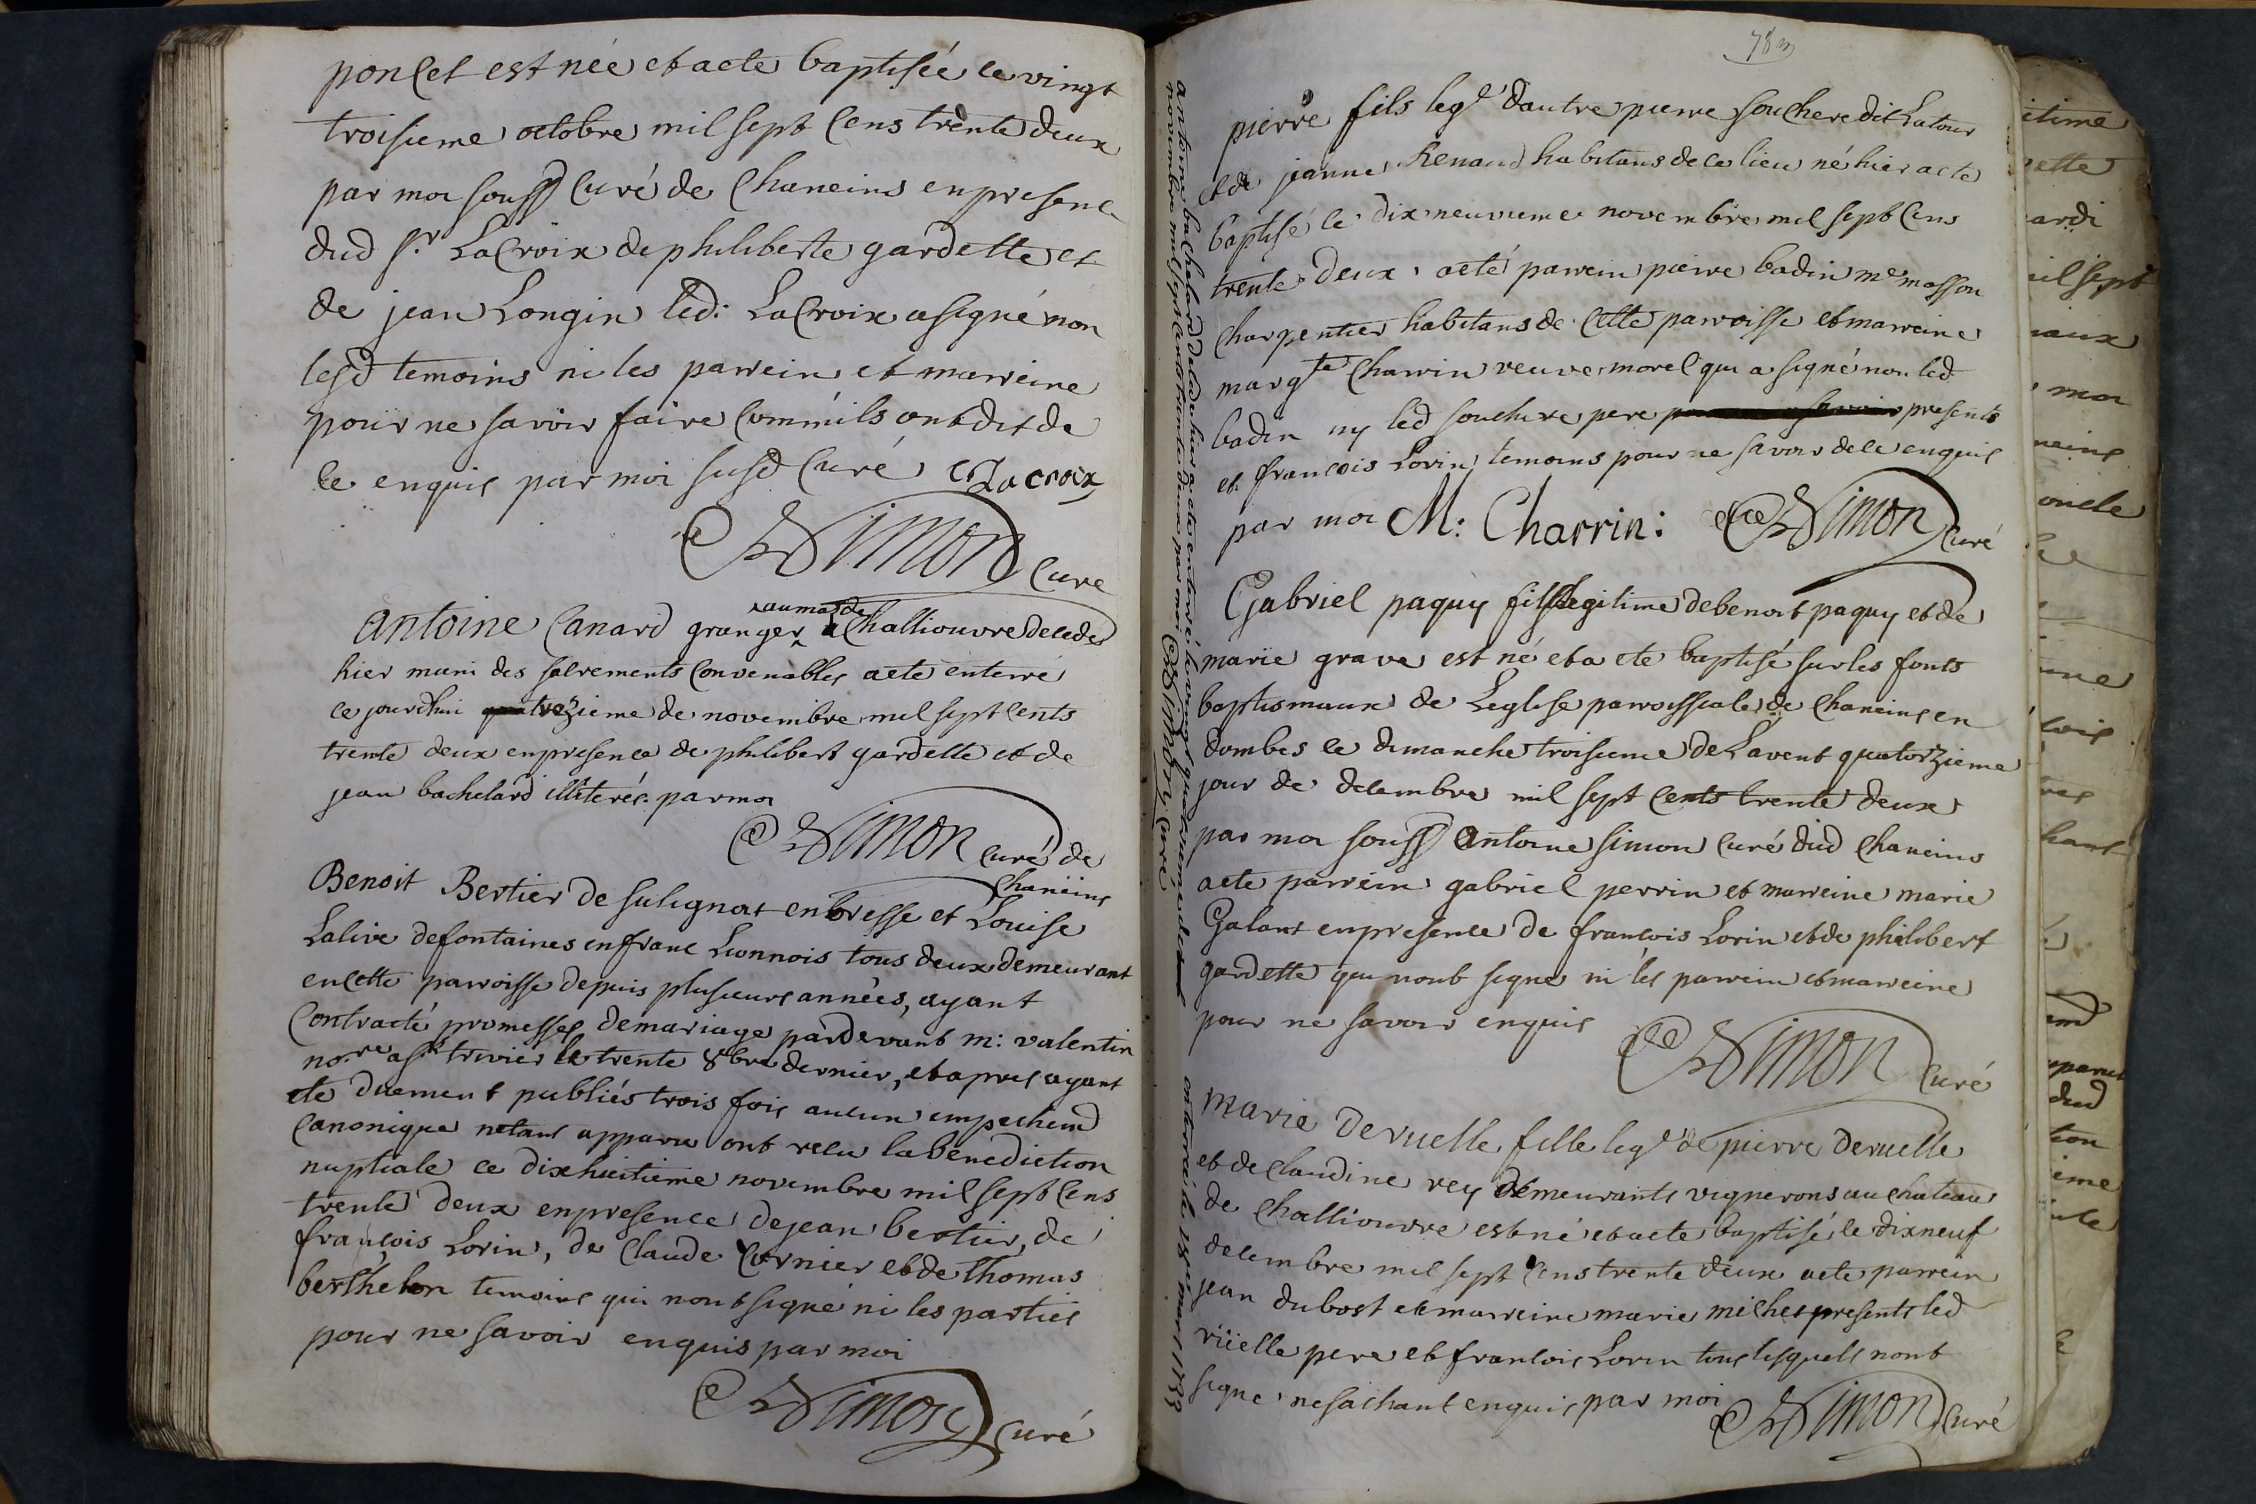 poncet est née et a eté baptisée le vingt
troisieme octobre mil sept cens trente deux
par moi souss curé de Chaneins en presence
dud sr. LaCroix de philiberte gardette et
de jean Longin led: LaCroix a signé non
lesd temoins ni les parrein et marreine
pour ne savoir faire comm'ils ont dit de
ce enquis par moi susd Curé Lacroix
Simon Curé
Antoine Canard granger au mas de Challiouvre decedé
hier muni des sacrements convenables a eté enterré
ce jourdhui trezieme de novembre mil sept cents
trente deux en presence de philibert gardette et de
jean bachelard illiterés par moi
Simon curé de
Chaneins
Benoit Bertier de sulignat en bresse et Louise
Lalive de fontaines en franc Lionnois tous deux demeurant
en cette parroisse depuis plusieurs années, ayant
Contracté promesses de mariage pardevant m: valentin
nore a st trivier le trente 8bre dernier, et apres ayant
eté duement publiés trois fois aucun empechemd
Canonique netant apparu ont recu la benediction
nuptiale ce dixhuitieme novembre mil sept cens
trente deux en presence de jean bertier, de
francois Lorin, de Claude Cornier et de Thomas
berthelon temoins qui n'ont signé ni les parties
pour ne savoir enquis par moi
Simon curé
78
antoine bachelard decedé hier a eté enterré le vingt quatrieme
novembre mil sept cens trente deux par moi Simon Curé
enterré le mars 1733
pierre fils legé d'autre pierre souchere dit Latour
et de jeanne Renaud habitans de ce lieu né hier a eté
baptisé le dix neuvieme novembre mil sept cens
trente deux, a eté parrein pierre badin me masson
charpentier habitans de cette parroisse et marreine
margte Charrin veuve morel qui a signé non led
badin ny led souchere pere presents
et francois Lorin temoins pour ne savoir de ce enquis
par moi M: Charrin: Simon Curé
Gabriel paquy fils legitime de benoit paquy et de
marie grave est né et a eté baptisé sur les fonts
baptismaux de Leglise parroissiale de Chaneins en
dombes le dimanche troisieme de Lavent quatorzieme
jour de decembre mil sept cents trente deux
par moi souss Antoine simon curé dud Chaneins
a eté parrein gabriel perrin et marreine marie
Galant en presence de francois Lorin et de philibert
gardette qui n'ont signé ni les parrein et marreine
pour ne savoir enquis
Simon Curé
Marie Deruelle fille legé de pierre Deruelle
et de Claudine rey demeurants vignerons au chateau
de Challiouvre est né et a eté baptisé le dixneuf
decembre mil sept cens trente deux a eté parrein
jean dubost et marreine marie michet presents led
rüelle pere et francois Lorin tous lesquels n'ont
signé ne sachant enquis par moi
Simon Curé